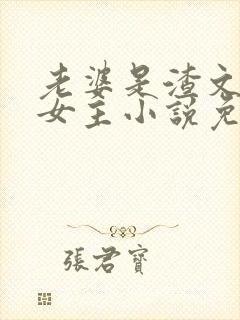 老婆是渣文
女主小說免
張君寶